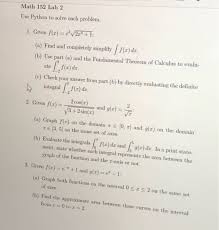 Math 152 Lab 2
Use Python to solve each problem.
1. Given f(x) = x³√(2x² + 1):
(a) Find and completely simplify ∫ f(x) dx.
(b) Use part (a) and the Fundamental Theorem of Calculus to evalu-
ate ∫ f(x) dx.
(c) Check your answer from part (b) by directly evaluating the definite
integral ∫ f(x) dx.
2. Given f(x) = 2 cos(x) / √(1 + 2 sin(x)) and g(x) =
(a) Graph f(x) on the domain x ∈ [0, π] and g(x) on the domain
x ∈ on the same set of axes.
(b) Evaluate the integrals ∫ f(x) dx and ∫ g(x) dx. In a print state-
ment, state whether each integral represents the area between the
graph of the function and the x-axis or not.
3. Given f(x) = and g(x) =
(a) Graph both functions on the interval 0 ≤ x ≤ 2 on the same set
of axes.
(b) Find the approximate area between these curves on the interval
from x = 0 to x = 2.